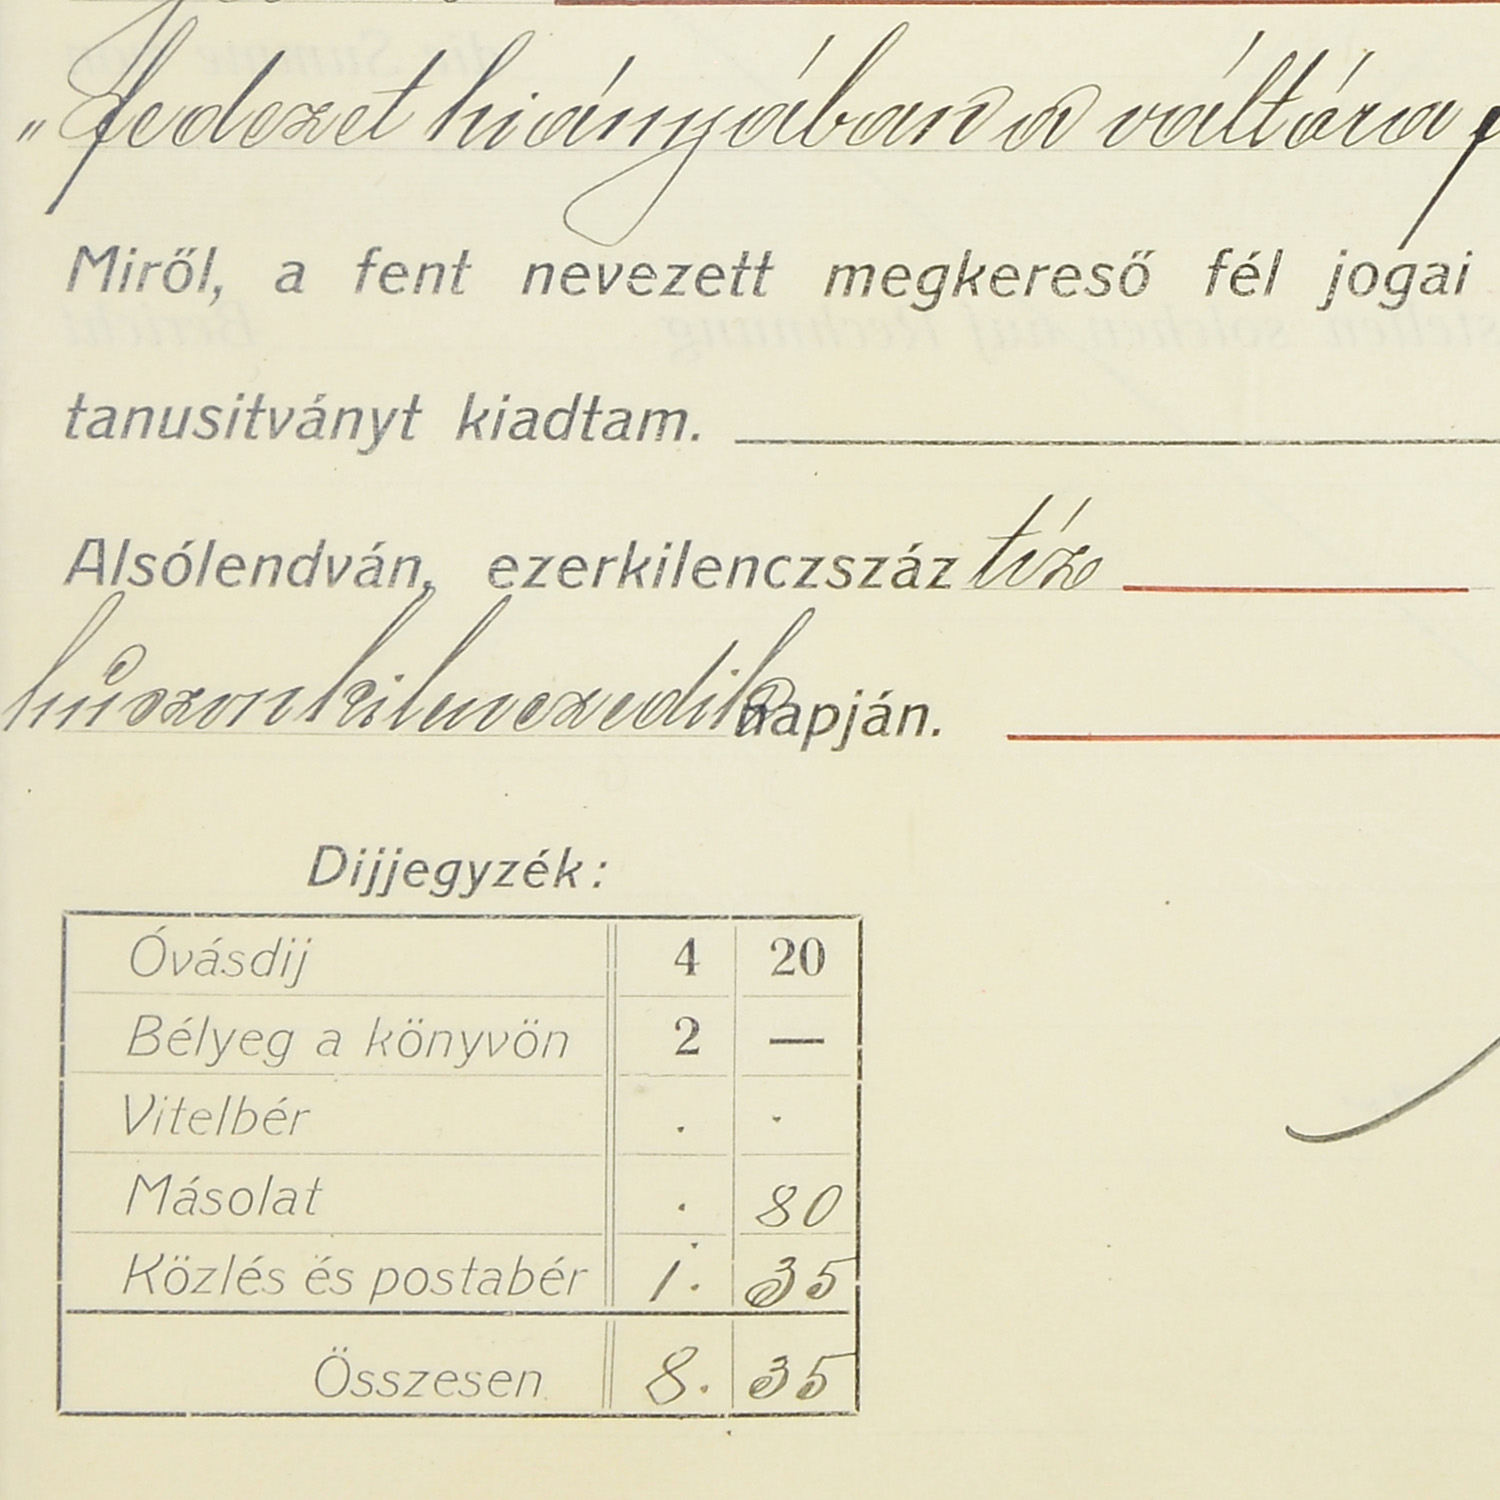 „fedezet hiányában a váltóra
Miről, a fent nevezett megkereső fél jogai
tanusitványt kiadtam.
Alsólendván, ezerkilenczszáz tíz
huszonkilenczedik napján.
Dijjegyzék:
Óvásdij 4 20
Bélyeg a könyvön 2 —
Vitelbér . .
Másolat . 80
Közlés és postabér 1. 35
Összesen 8. 35